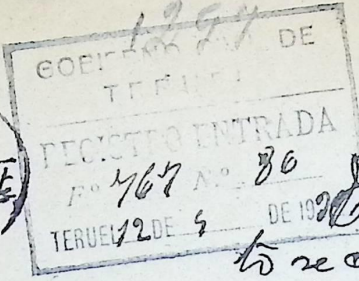 1294
GOBIERNO DE
TERUEL
REGISTRO ENTRADA
Fº 767 Nº 80
TERUEL 12 DE 5 DE 19
to se